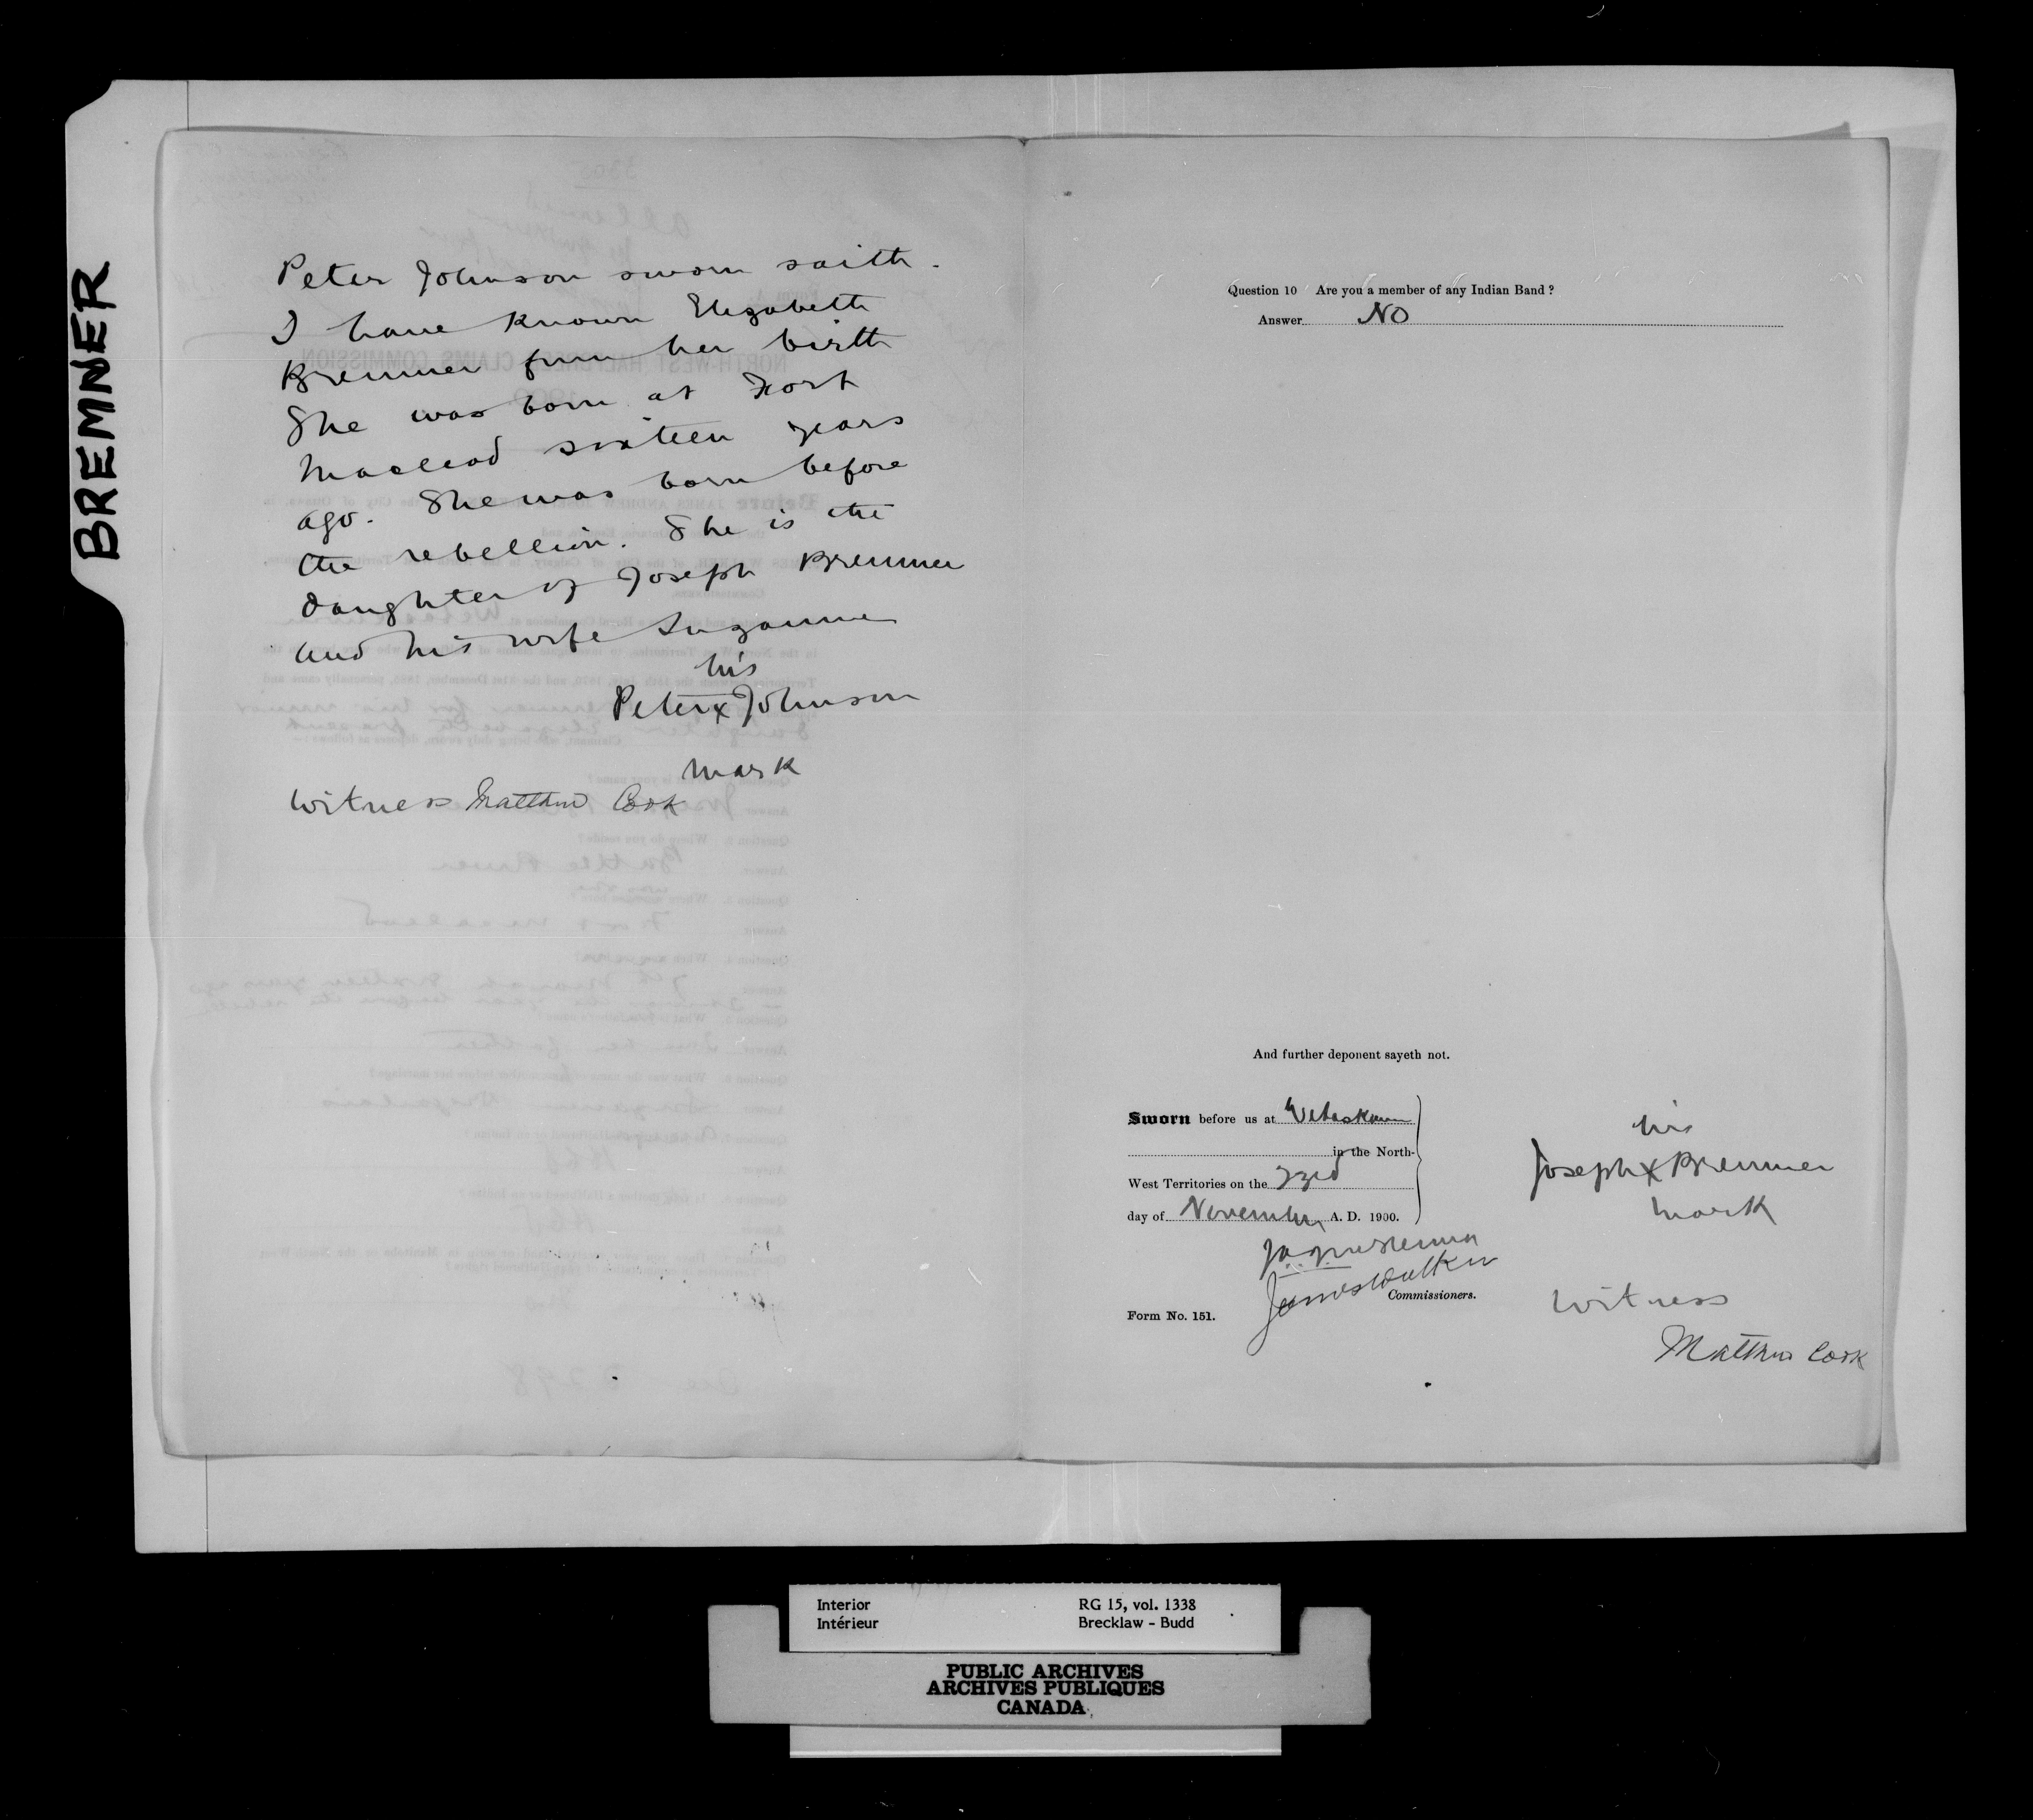 BREMNER
Peter Johnson sworn saith.
I have known Elizabeth
Bremner from her birth
She was born at Fort
Macleod sixteen years
ago. She was born before
the rebellion. She is the
daughter of Joseph Bremner
and his wife Suzanne
his
Peter X Johnson
mark
Witness Matthew Cook
Question 10 Are you a member of any Indian Band?
Answer NO
And further deponent sayeth not.
Sworn before us at Wetaskiwin
in the North-
West Territories on the
day of November A. D. 1900.
James Walker
Commissioners.
Form No. 151.
his
Joseph X Bremner
mark
Witness
Matthew Cook
Interior
Intérieur
RG 15, vol. 1338
Brecklaw - Budd
PUBLIC ARCHIVES
ARCHIVES PUBLIQUES
CANADA